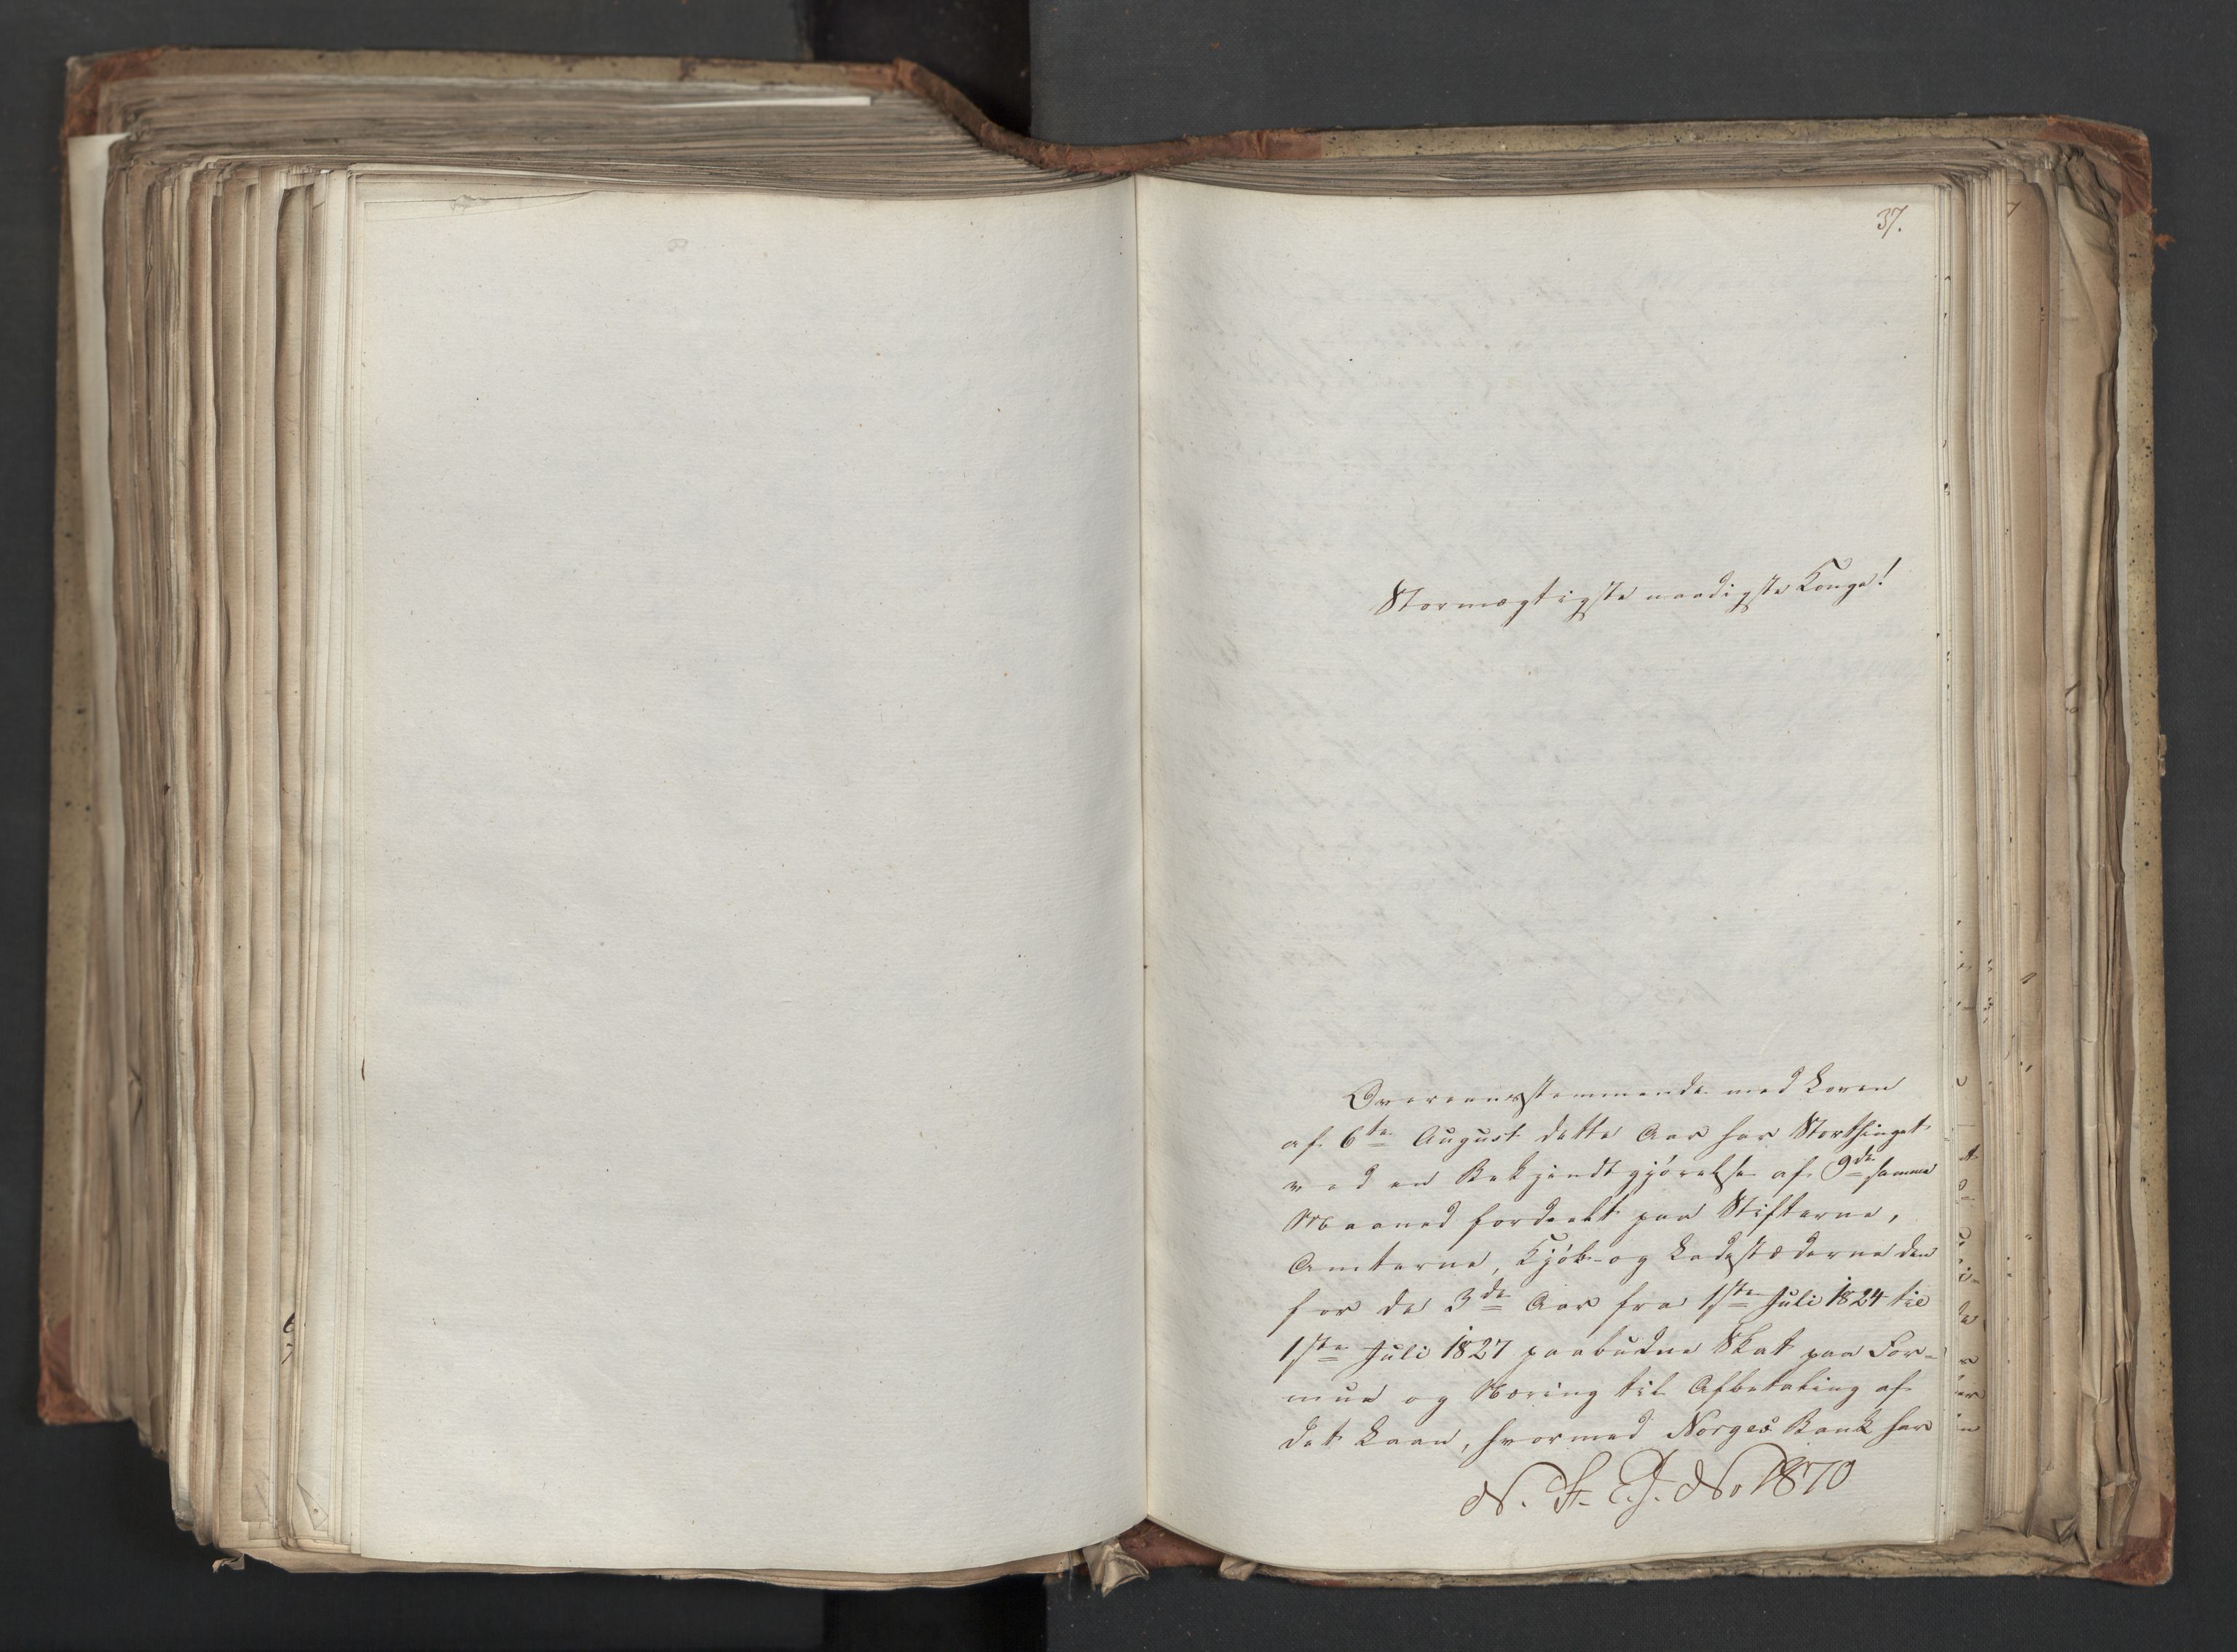 37.
Stormægtigste naadigste Konge!
Overeensstemmende med Loven
af 6te August dette Aar har Storthinget
ved en Bekjendtgjørelse af 9de samme
Maaned fordeelt paa Stifterne,
Amterne, Kjøb- og Ladestæderne den
for de 3de Aar fra 1ste Juli 1824 til
1ste Juli 1827 paabudne Skat paa For-
mue og Næring til Afbetaling af
det Laan, hvormed Norges Bank har
No 1870